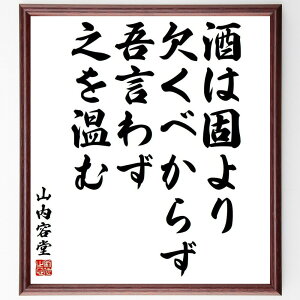 酒は固より
欠くべからず
吾言わず
之を温む
山内容堂